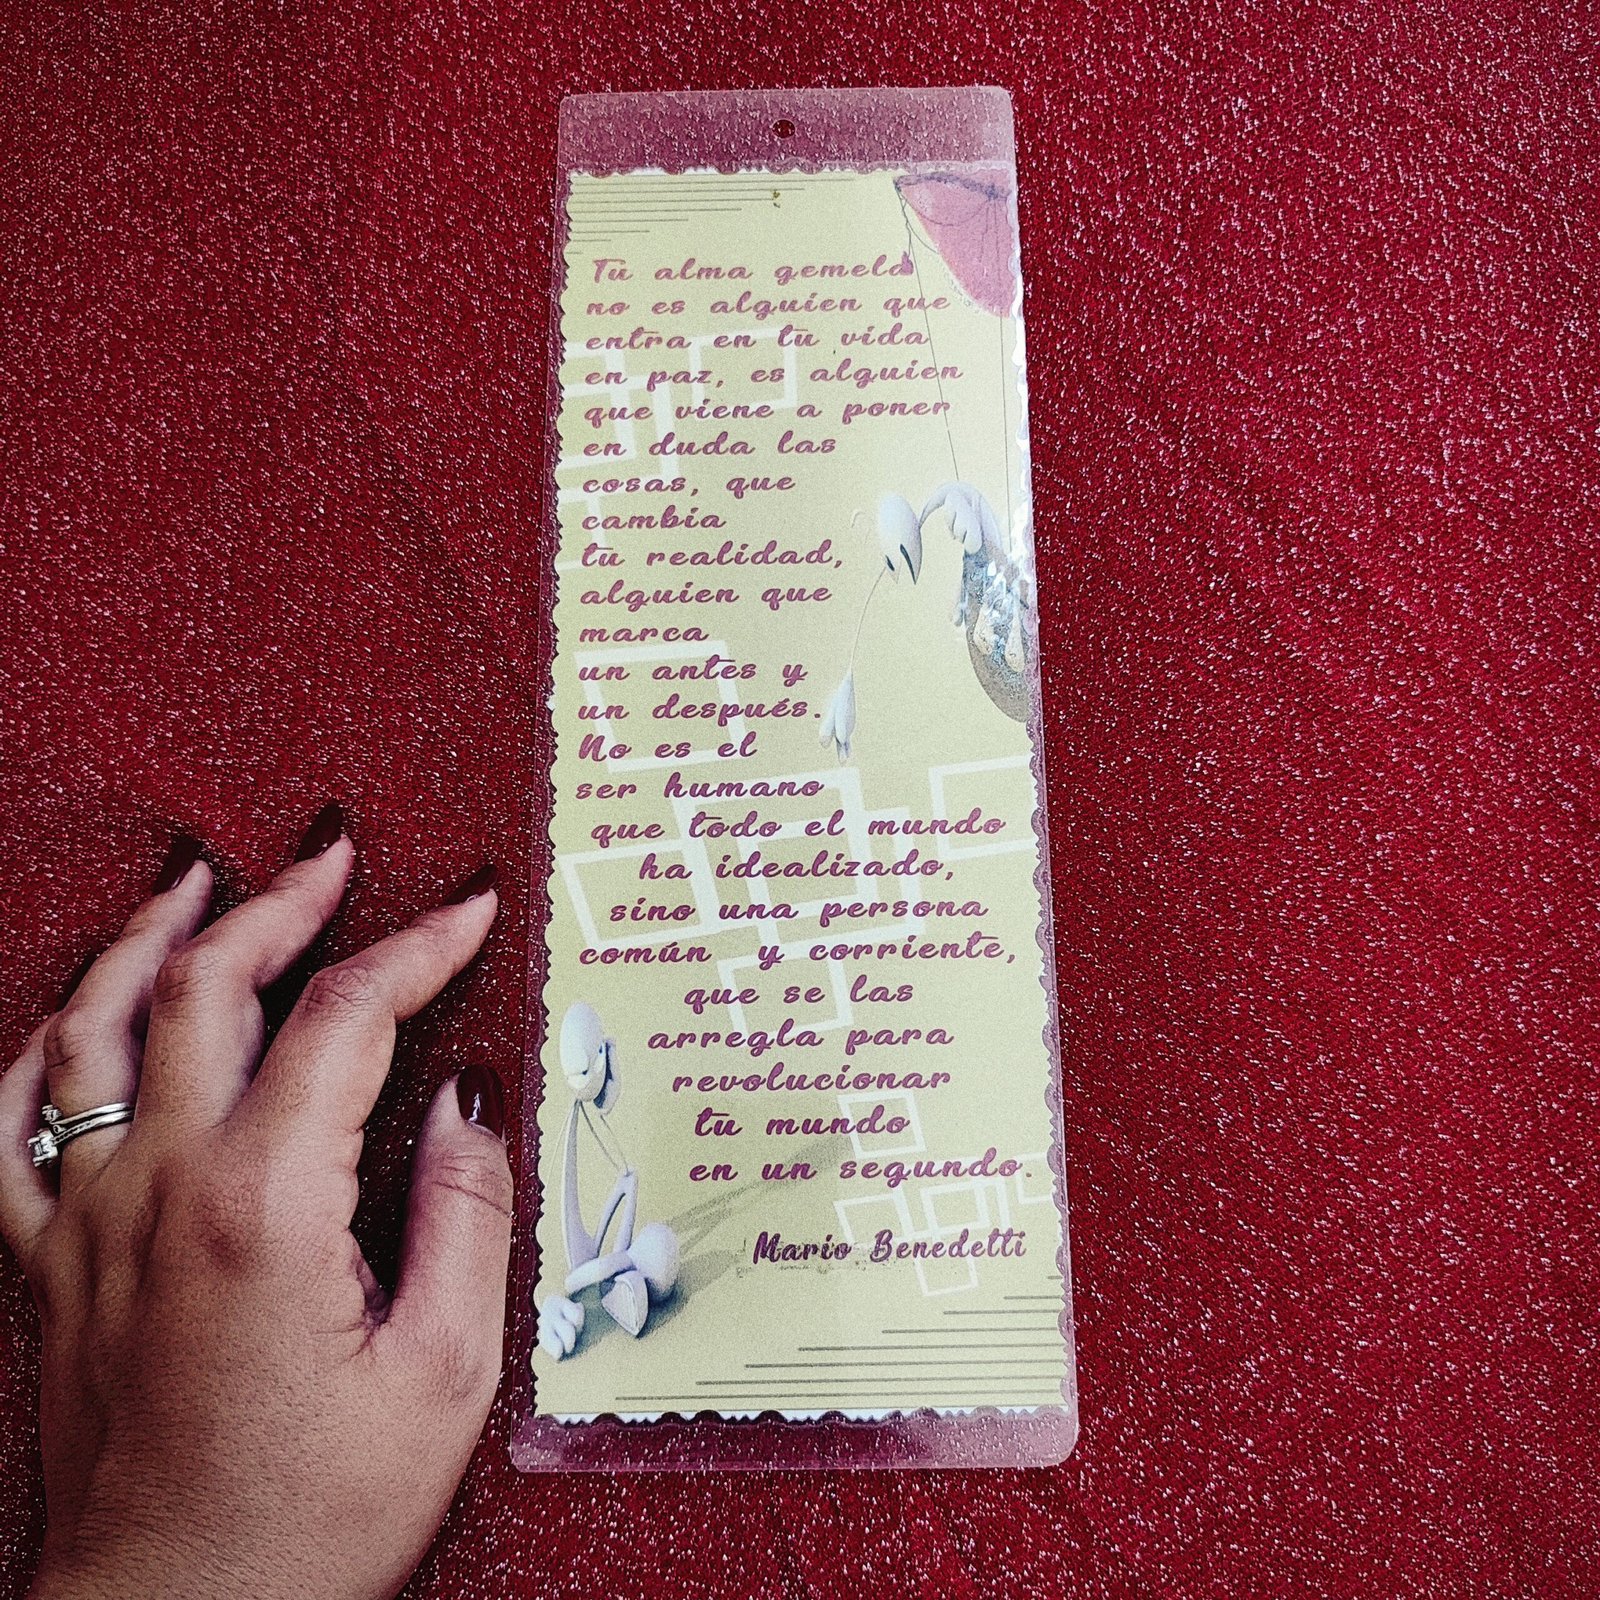 Tu alma gemela
no es alguien que
entra en tu vida
en paz, es alguien
que viene a poner
en duda las
cosas, que
cambia
tu realidad,
alguien que
marca
un antes y
un después.
No es el
ser humano
que todo el mundo
ha idealizado,
sino una persona
común y corriente,
que se las
arregla para
revolucionar
tu mundo
en un segundo.
Mario Benedetti